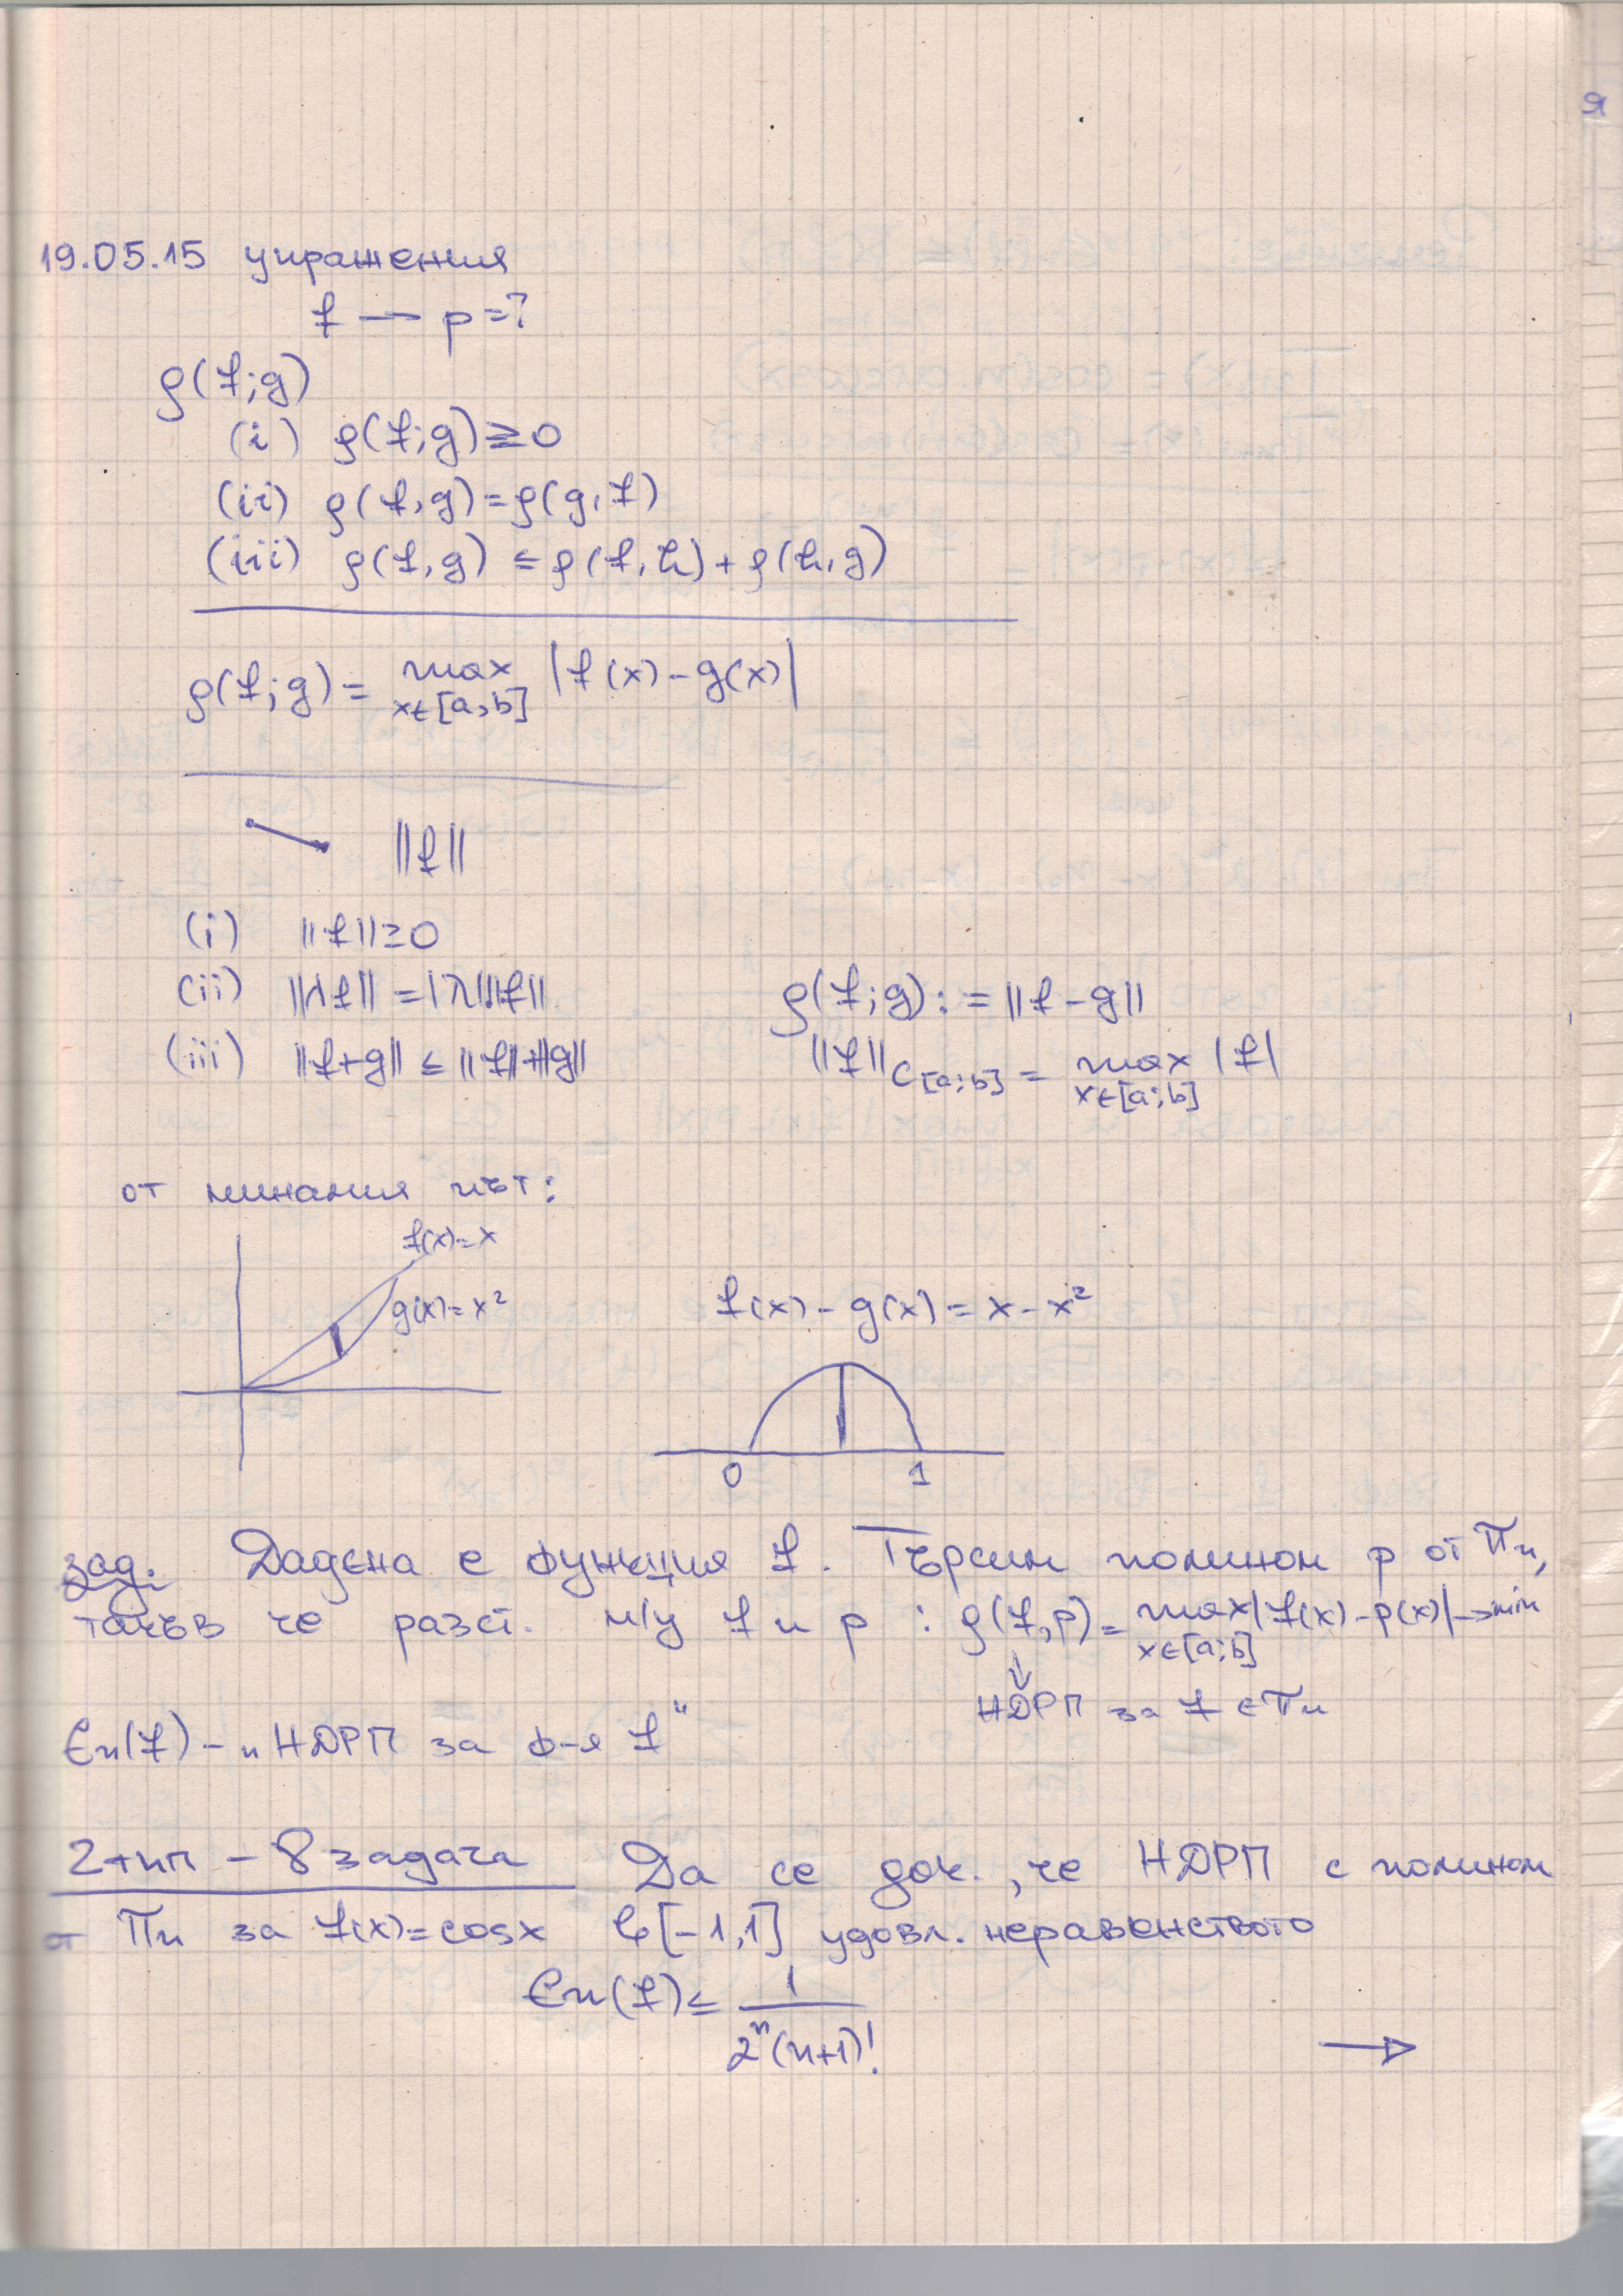 19.05.15 упражнения
f — p=?
ρ(f;g)
(i) ρ(f;g)≥0
(ii) ρ(f,g)=ρ(g,f)
(iii) ρ(f,g) ≤ ρ(f,h)+ρ(h,g)
ρ(f;g)= max |f(x)-g(x)|
x∈[a,b]
||f||
(i) ||f||≥0
(ii) ||λf|| = |λ|.||f||
(iii) ||f+g|| ≤ ||f||+||g||
ρ(f;g):=||f-g||
||f||C[a;b] = max |f|
x∈[a;b]
от миналия път:
f(x)=x
g(x)=x²
f(x)-g(x)=x-x²
0 1
зад. Дадена е функция f. Търсим полином p от πn,
такъв че разст. м/у f и p : ρ(f,p)= max|f(x)-p(x)|→min
x∈[a;b]
↓
НДРП за f ∈ πn
En(f) - „НДРП за ф-я f"
2тип - 8 задача Да се док., че НДРП с полином
от πn за f(x)=cosx в [-1,1] удовл. неравенството
En(f)≤ 1/2ⁿ(n+1)!
→
я